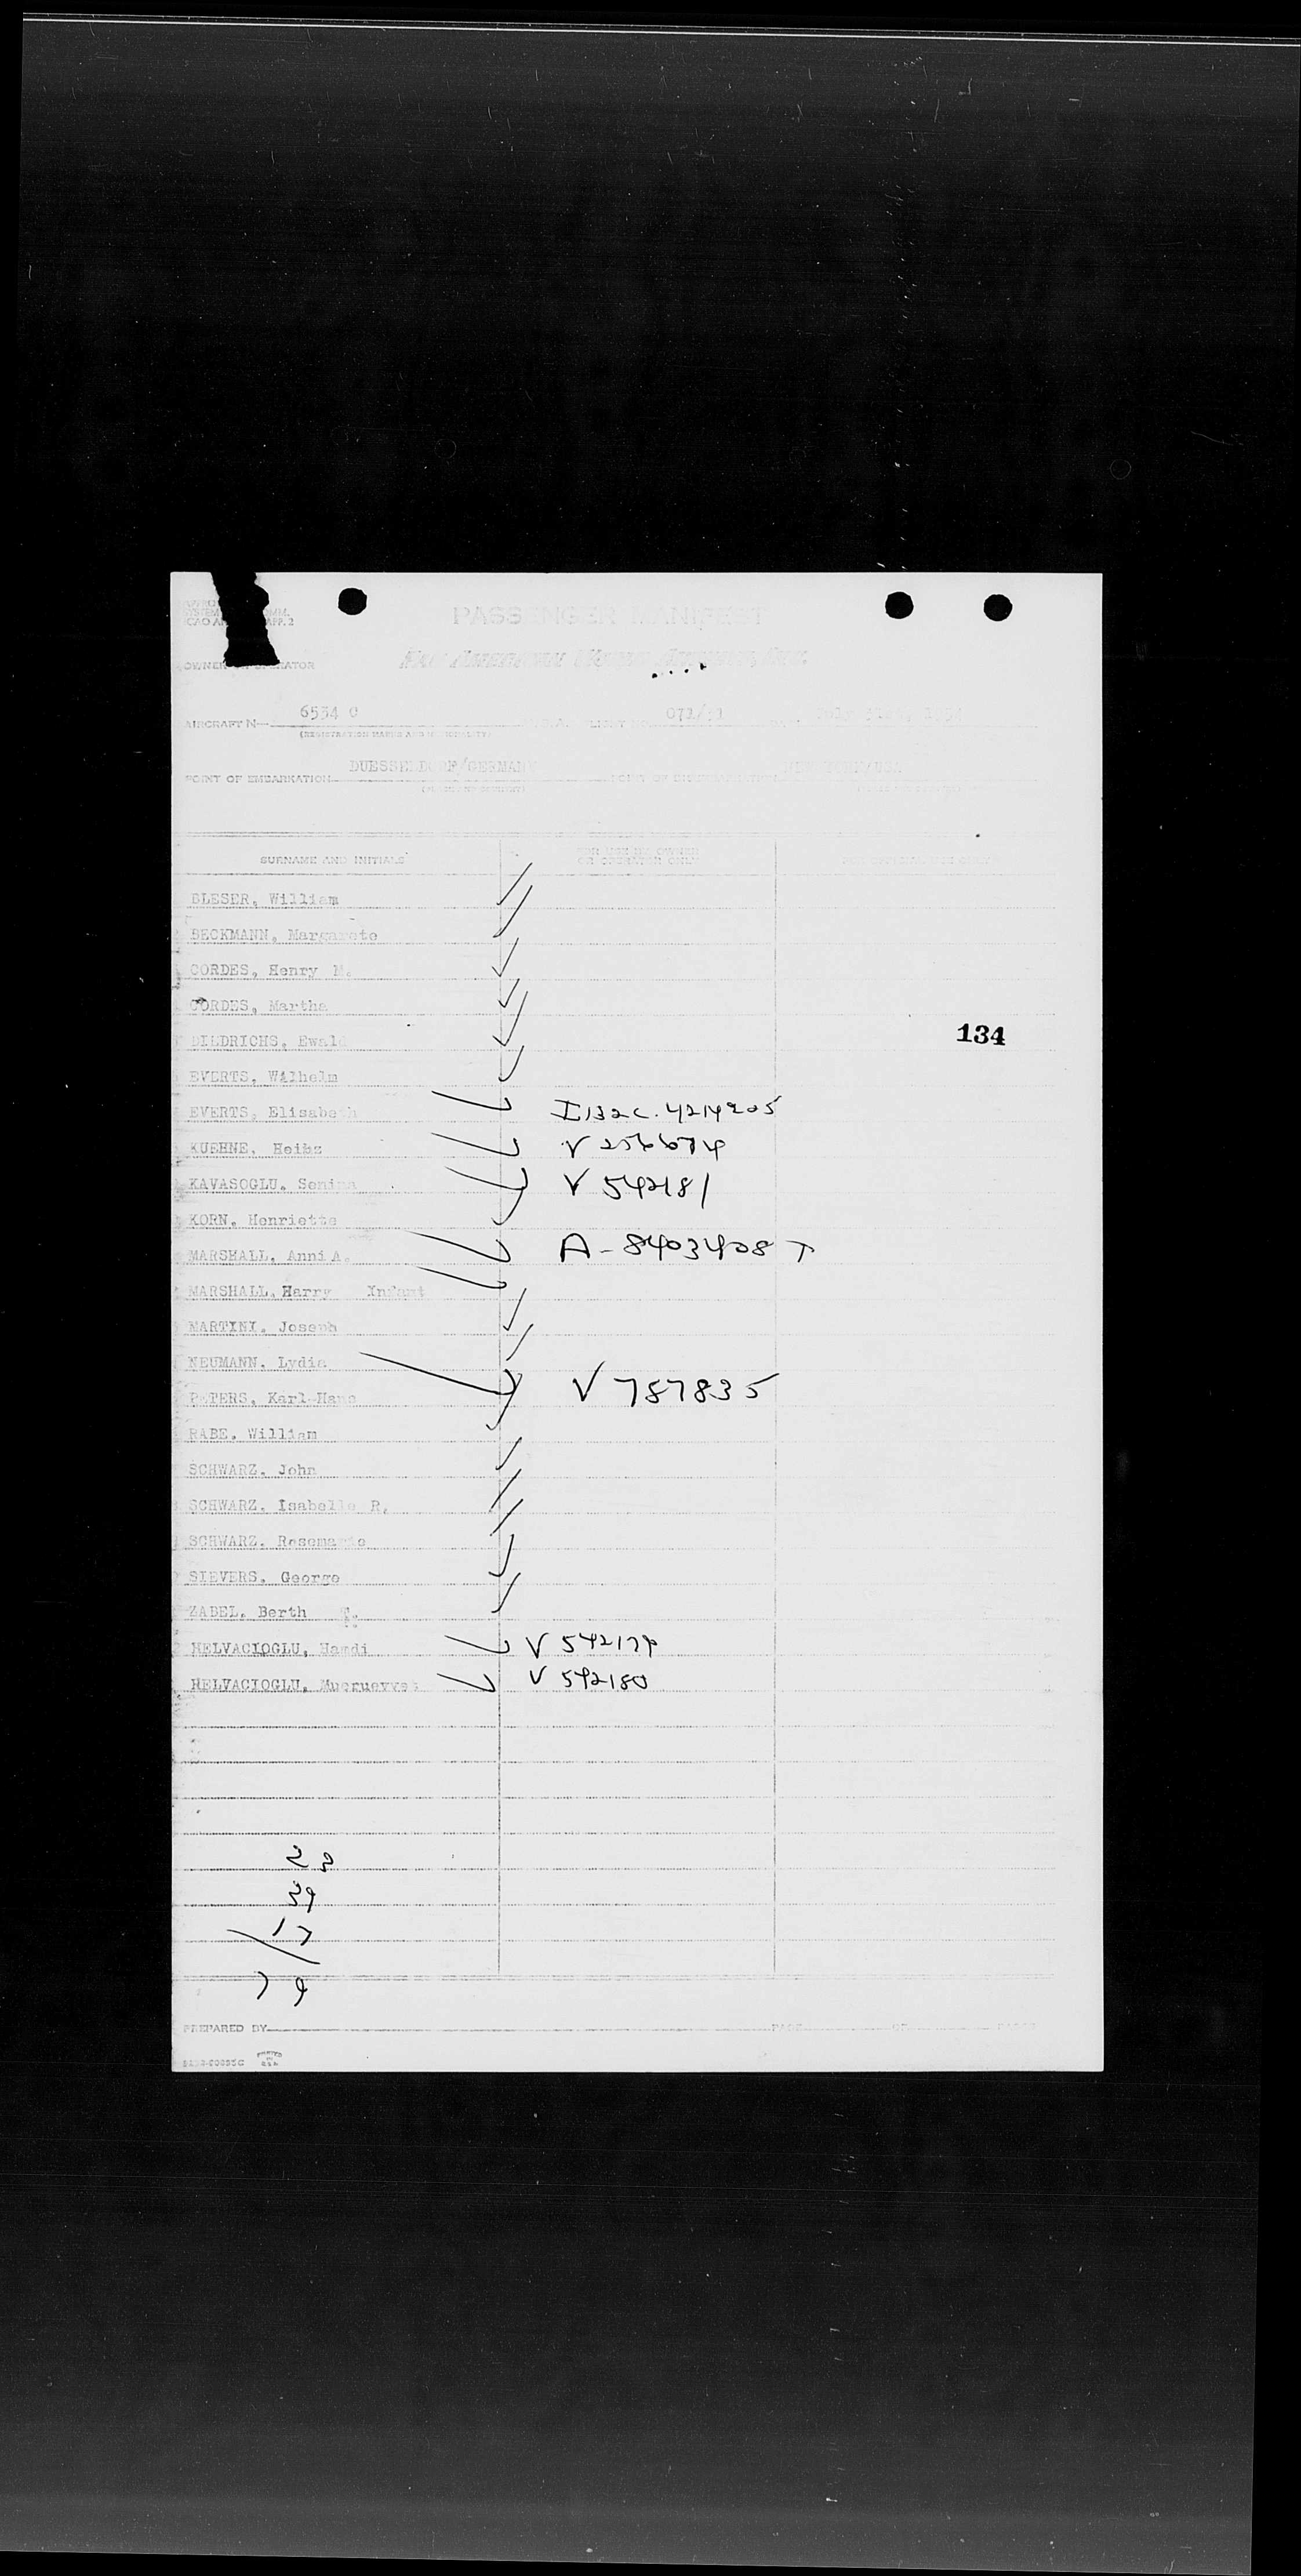 PASSENGER MANIFEST
PAN AMERICAN WORLD AIRWAYS, INC.
OWNER OR OPERATOR
AIRCRAFT N— 6534 C 071/31 July 31st,
(REGISTRATION MARKS AND NATIONALITY)
POINT OF EMBARKATION DUESSELDORF/GERMANY POINT OF DISEMBARKATION NEW YORK/USA
SURNAME AND INITIALS FOR USE BY OWNER OR OPERATOR ONLY FOR OFFICIAL USE ONLY
BLESER, William
BECKMANN, Margarete
CORDES, Henry
CORDES, Martha
134
DIEDRICHS, Ewald
EVERTS, Wilhelm
EVERTS, Elisabeth I132c.4214205
KUEHNE, Heinz V
KAVASOGLU, V 542181
KORN, Henriette
MARSHALL, Anni A. A-8403408 T
MARSHALL, Harry Infant
MARTINI, Joseph
NEUMANN, Lydia
PETERS, Karl-Hans V 787835
RABE, William
SCHWARZ, John
SCHWARZ, Isabelle R.
SCHWARZ, Rosemarie
SIEVERS, George
ZABEL, Berth T.
HELVACIOGLU, Hamdi V 542179
HELVACIOGLU, V 542180
39
17
79
PREPARED BY PAGE OF PAGES
PRINTED IN U.S.A.